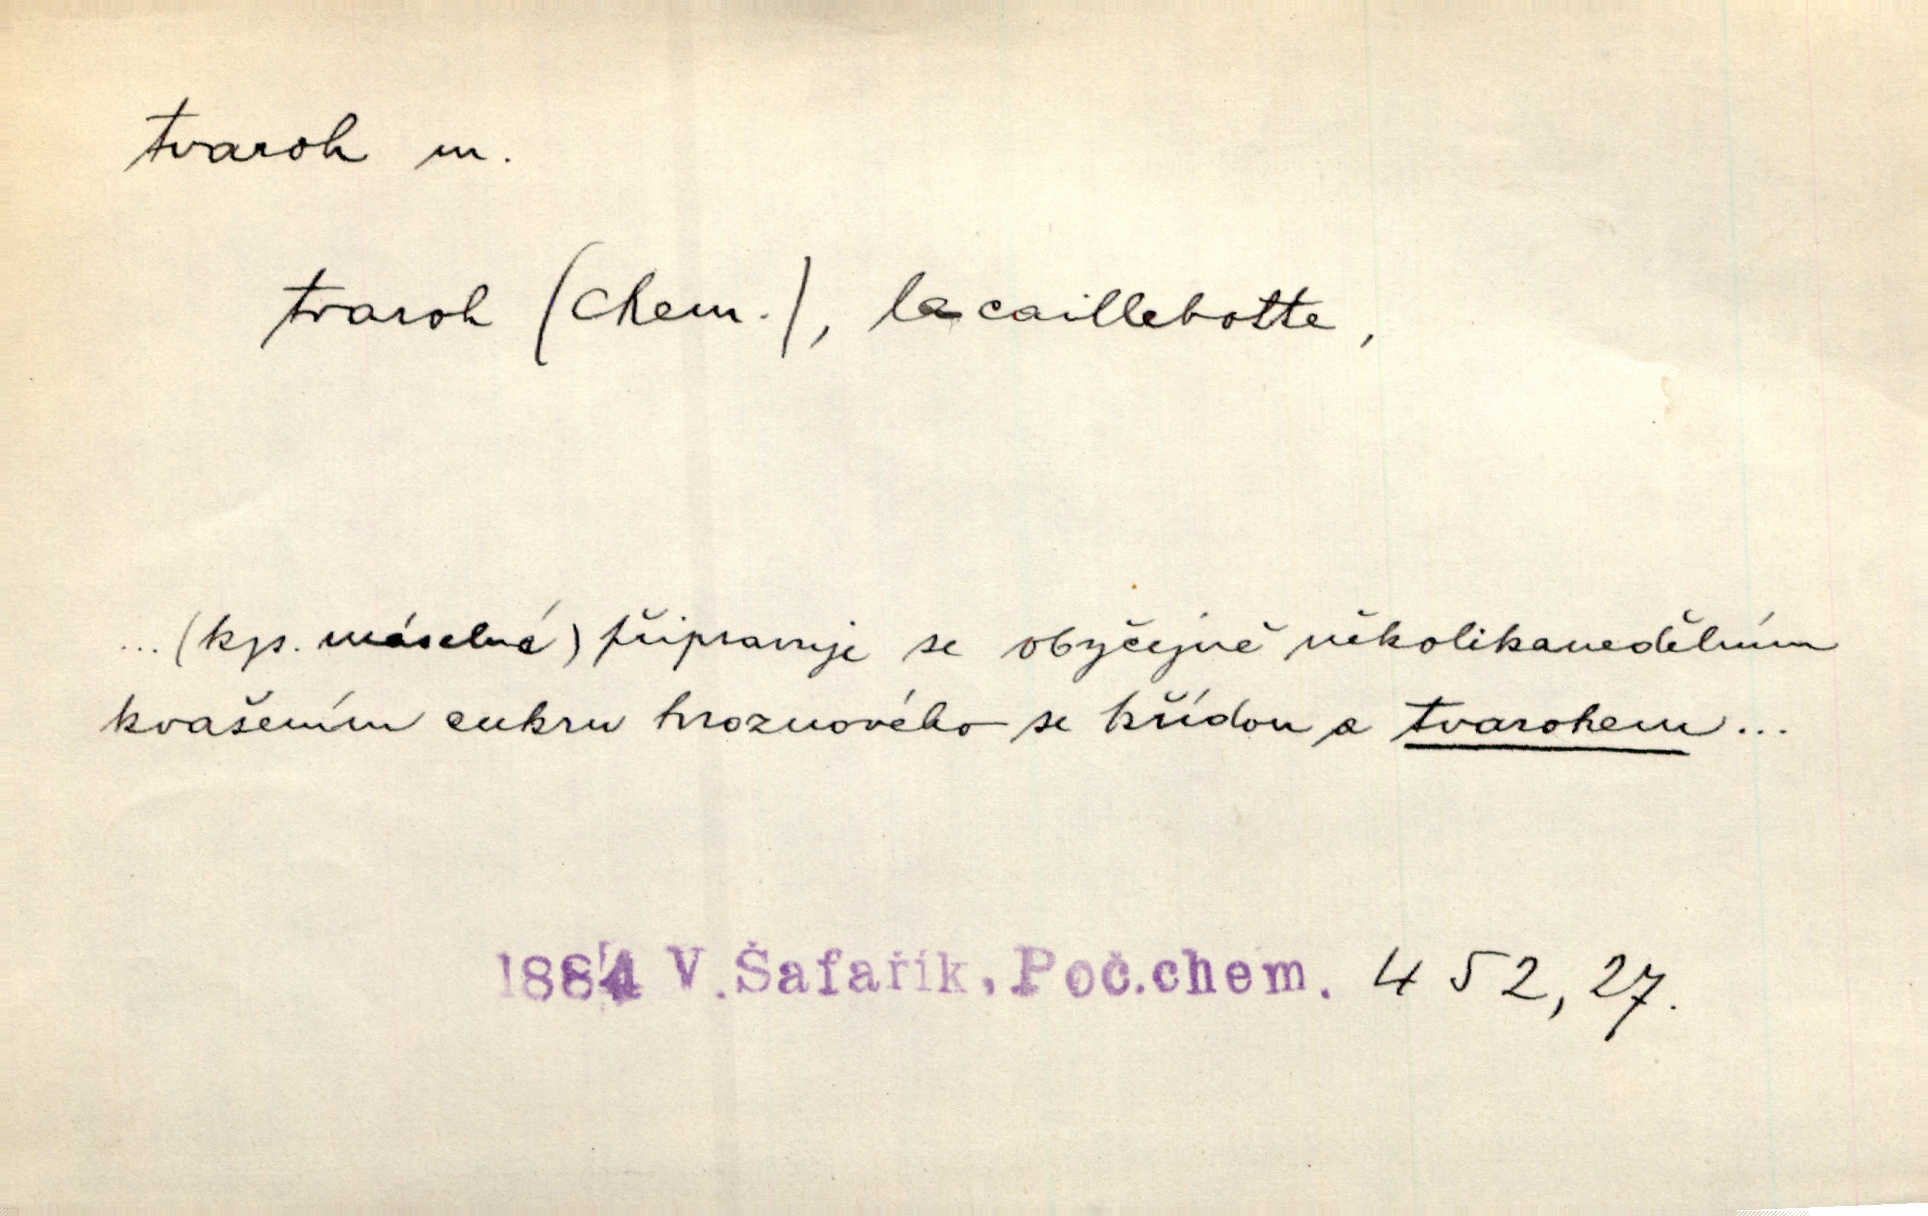 tvaroh m.
tvaroh (chem.), la caillebotte,
...(kys. máselná) připravuje se obyčejně několikanedělním
kvašením cukru hroznového se křídou a tvarohem...
1884 V.Šafařík, Poč.chem. 452,27.